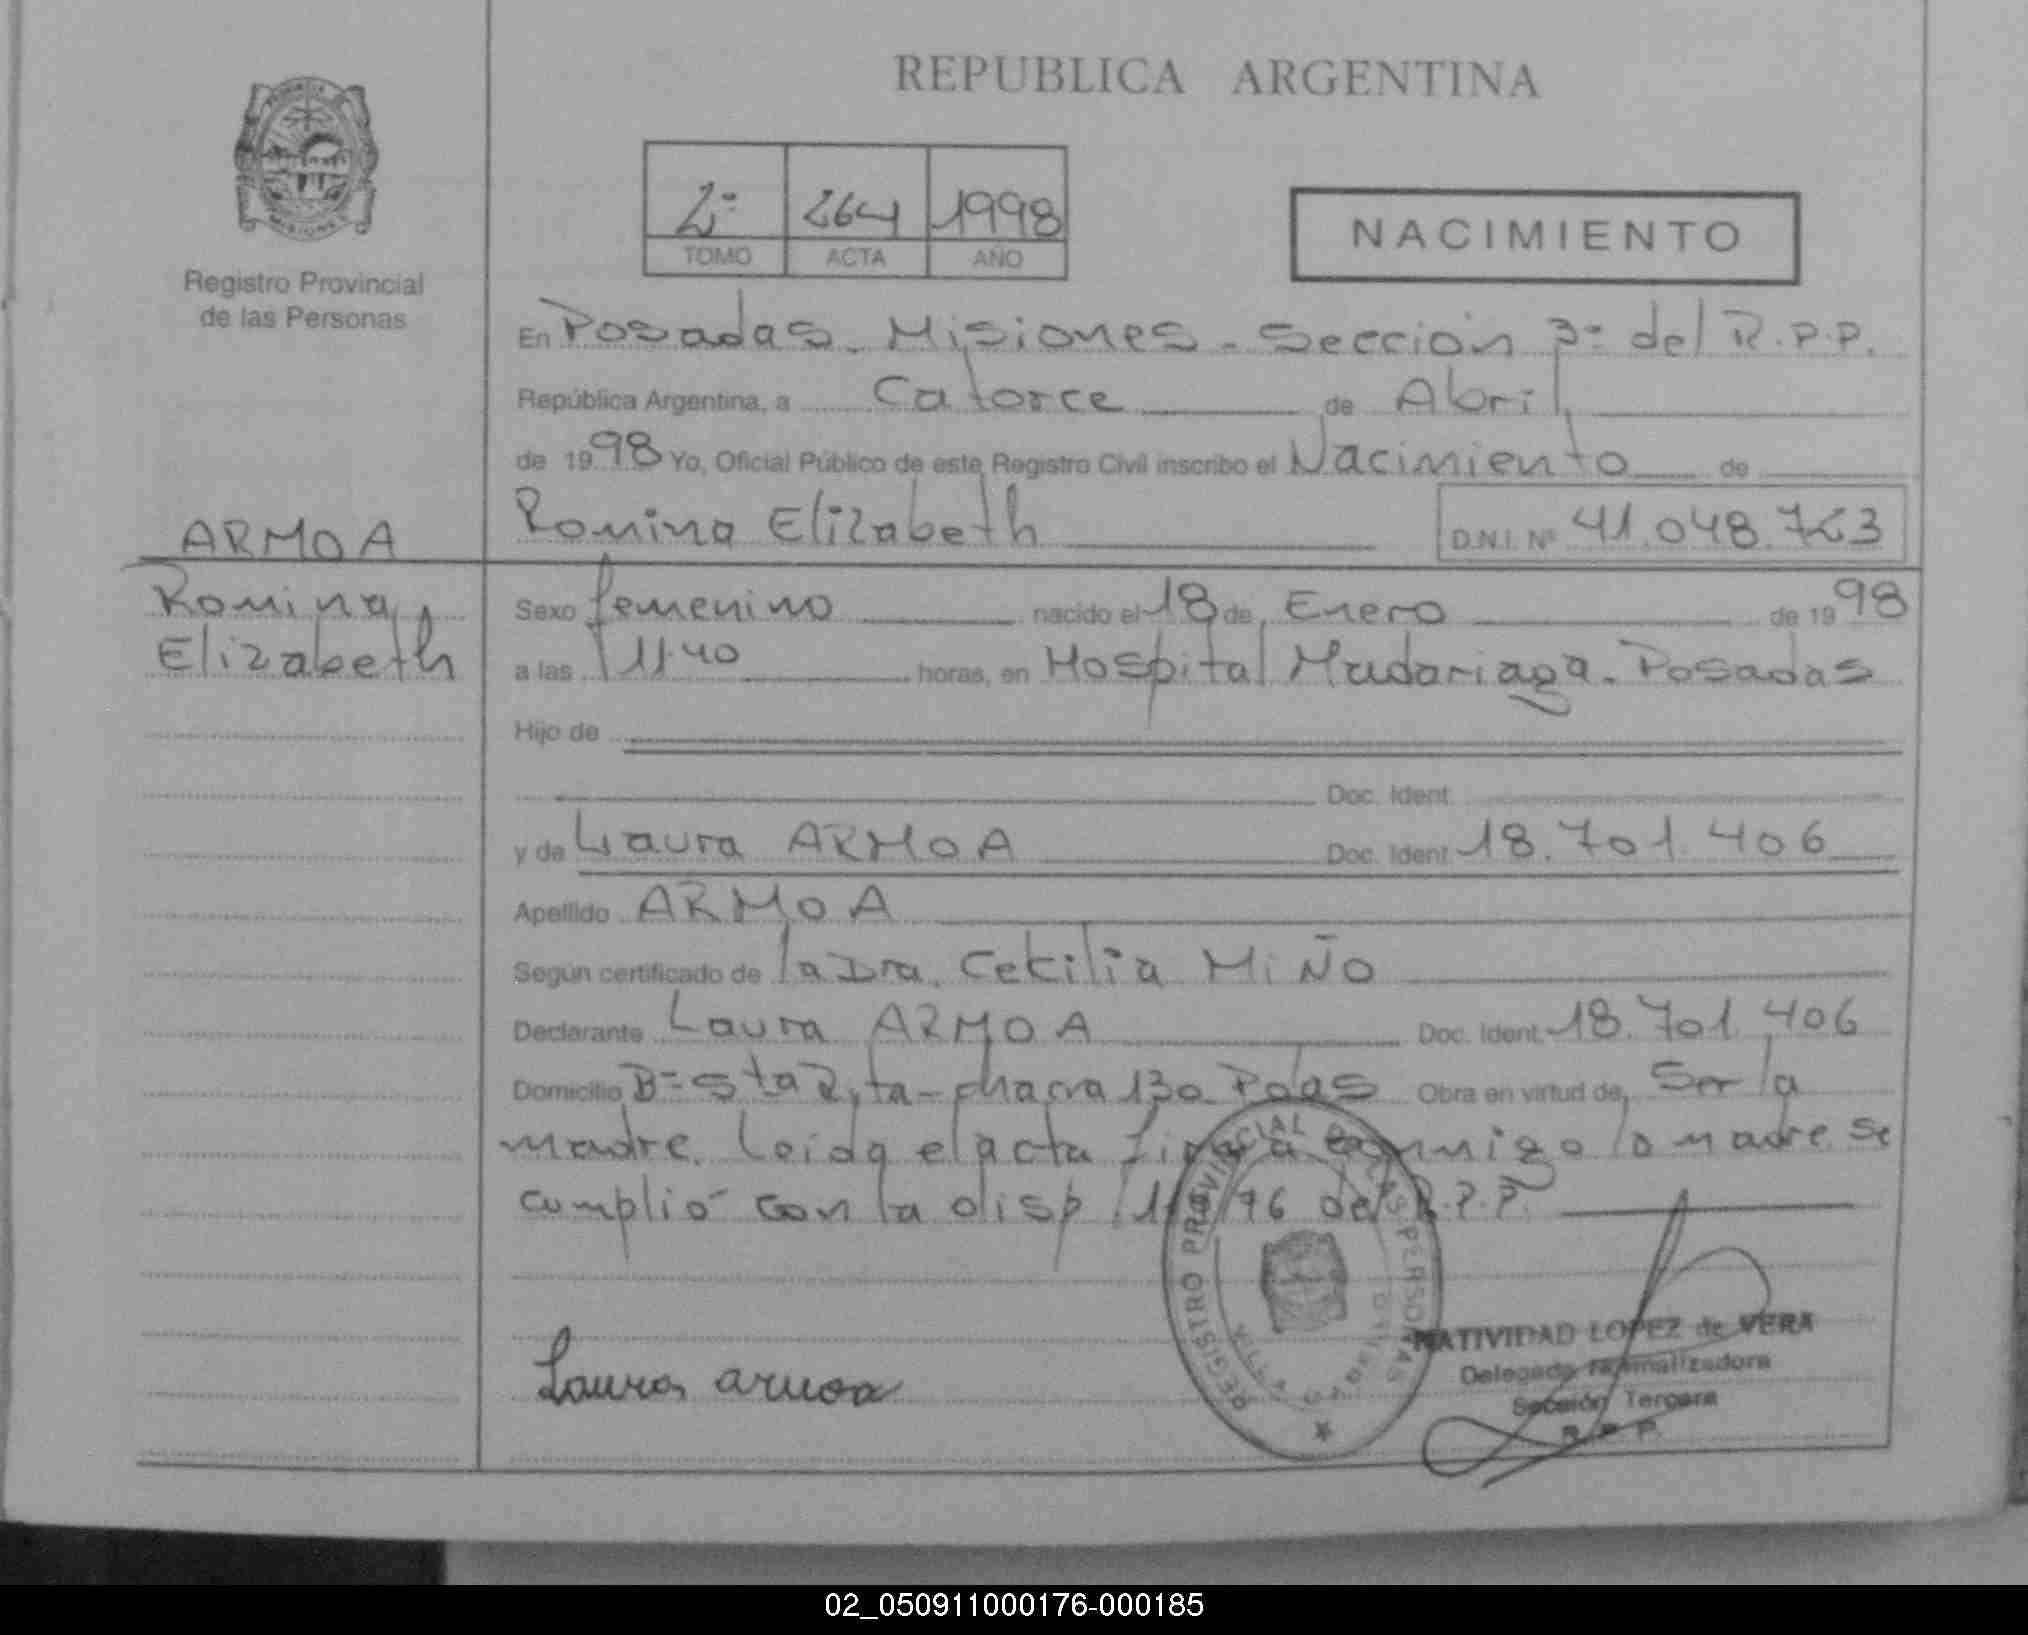 REPUBLICA ARGENTINA
2º 264 1998
TOMO ACTA AÑO
NACIMIENTO
Registro Provincial
de las Personas
En Posadas. Misiones. Sección 3º del R.P.P.
República Argentina, a Catorce de Abril
de 1998 Yo, Oficial Público de este Registro Civil inscribo el Nacimiento de
ARMOA
Romina Elizabeth D.N.I. Nº 41.048.763
Romina
Elizabeth
Sexo femenino nacido el 18 de Enero de 1998
a las 11.40 horas, en Hospital Madariaga. Posadas
Hijo de
Doc. Ident.
y de Laura ARMOA Doc. Ident. 18.701.406
Apellido ARMOA
Según certificado de la Dra. Cecilia MiÑo
Declarante Laura ARMOA Doc. Ident. 18.701.406
Domicilio Bº Sta Rita - chacra 130 Pdas Obra en virtud de Ser la
madre. Leida el acta firma conmigo la madre. se
cumplió con la disp /96 del R.P.P.
REGISTRO PROVINCIAL DE LAS PERSONAS
Laura armoa
NATIVIDAD LOPEZ de VERA
Delegada Normalizadora
Sección Tercera
R.P.P.
02_050911000176-000185